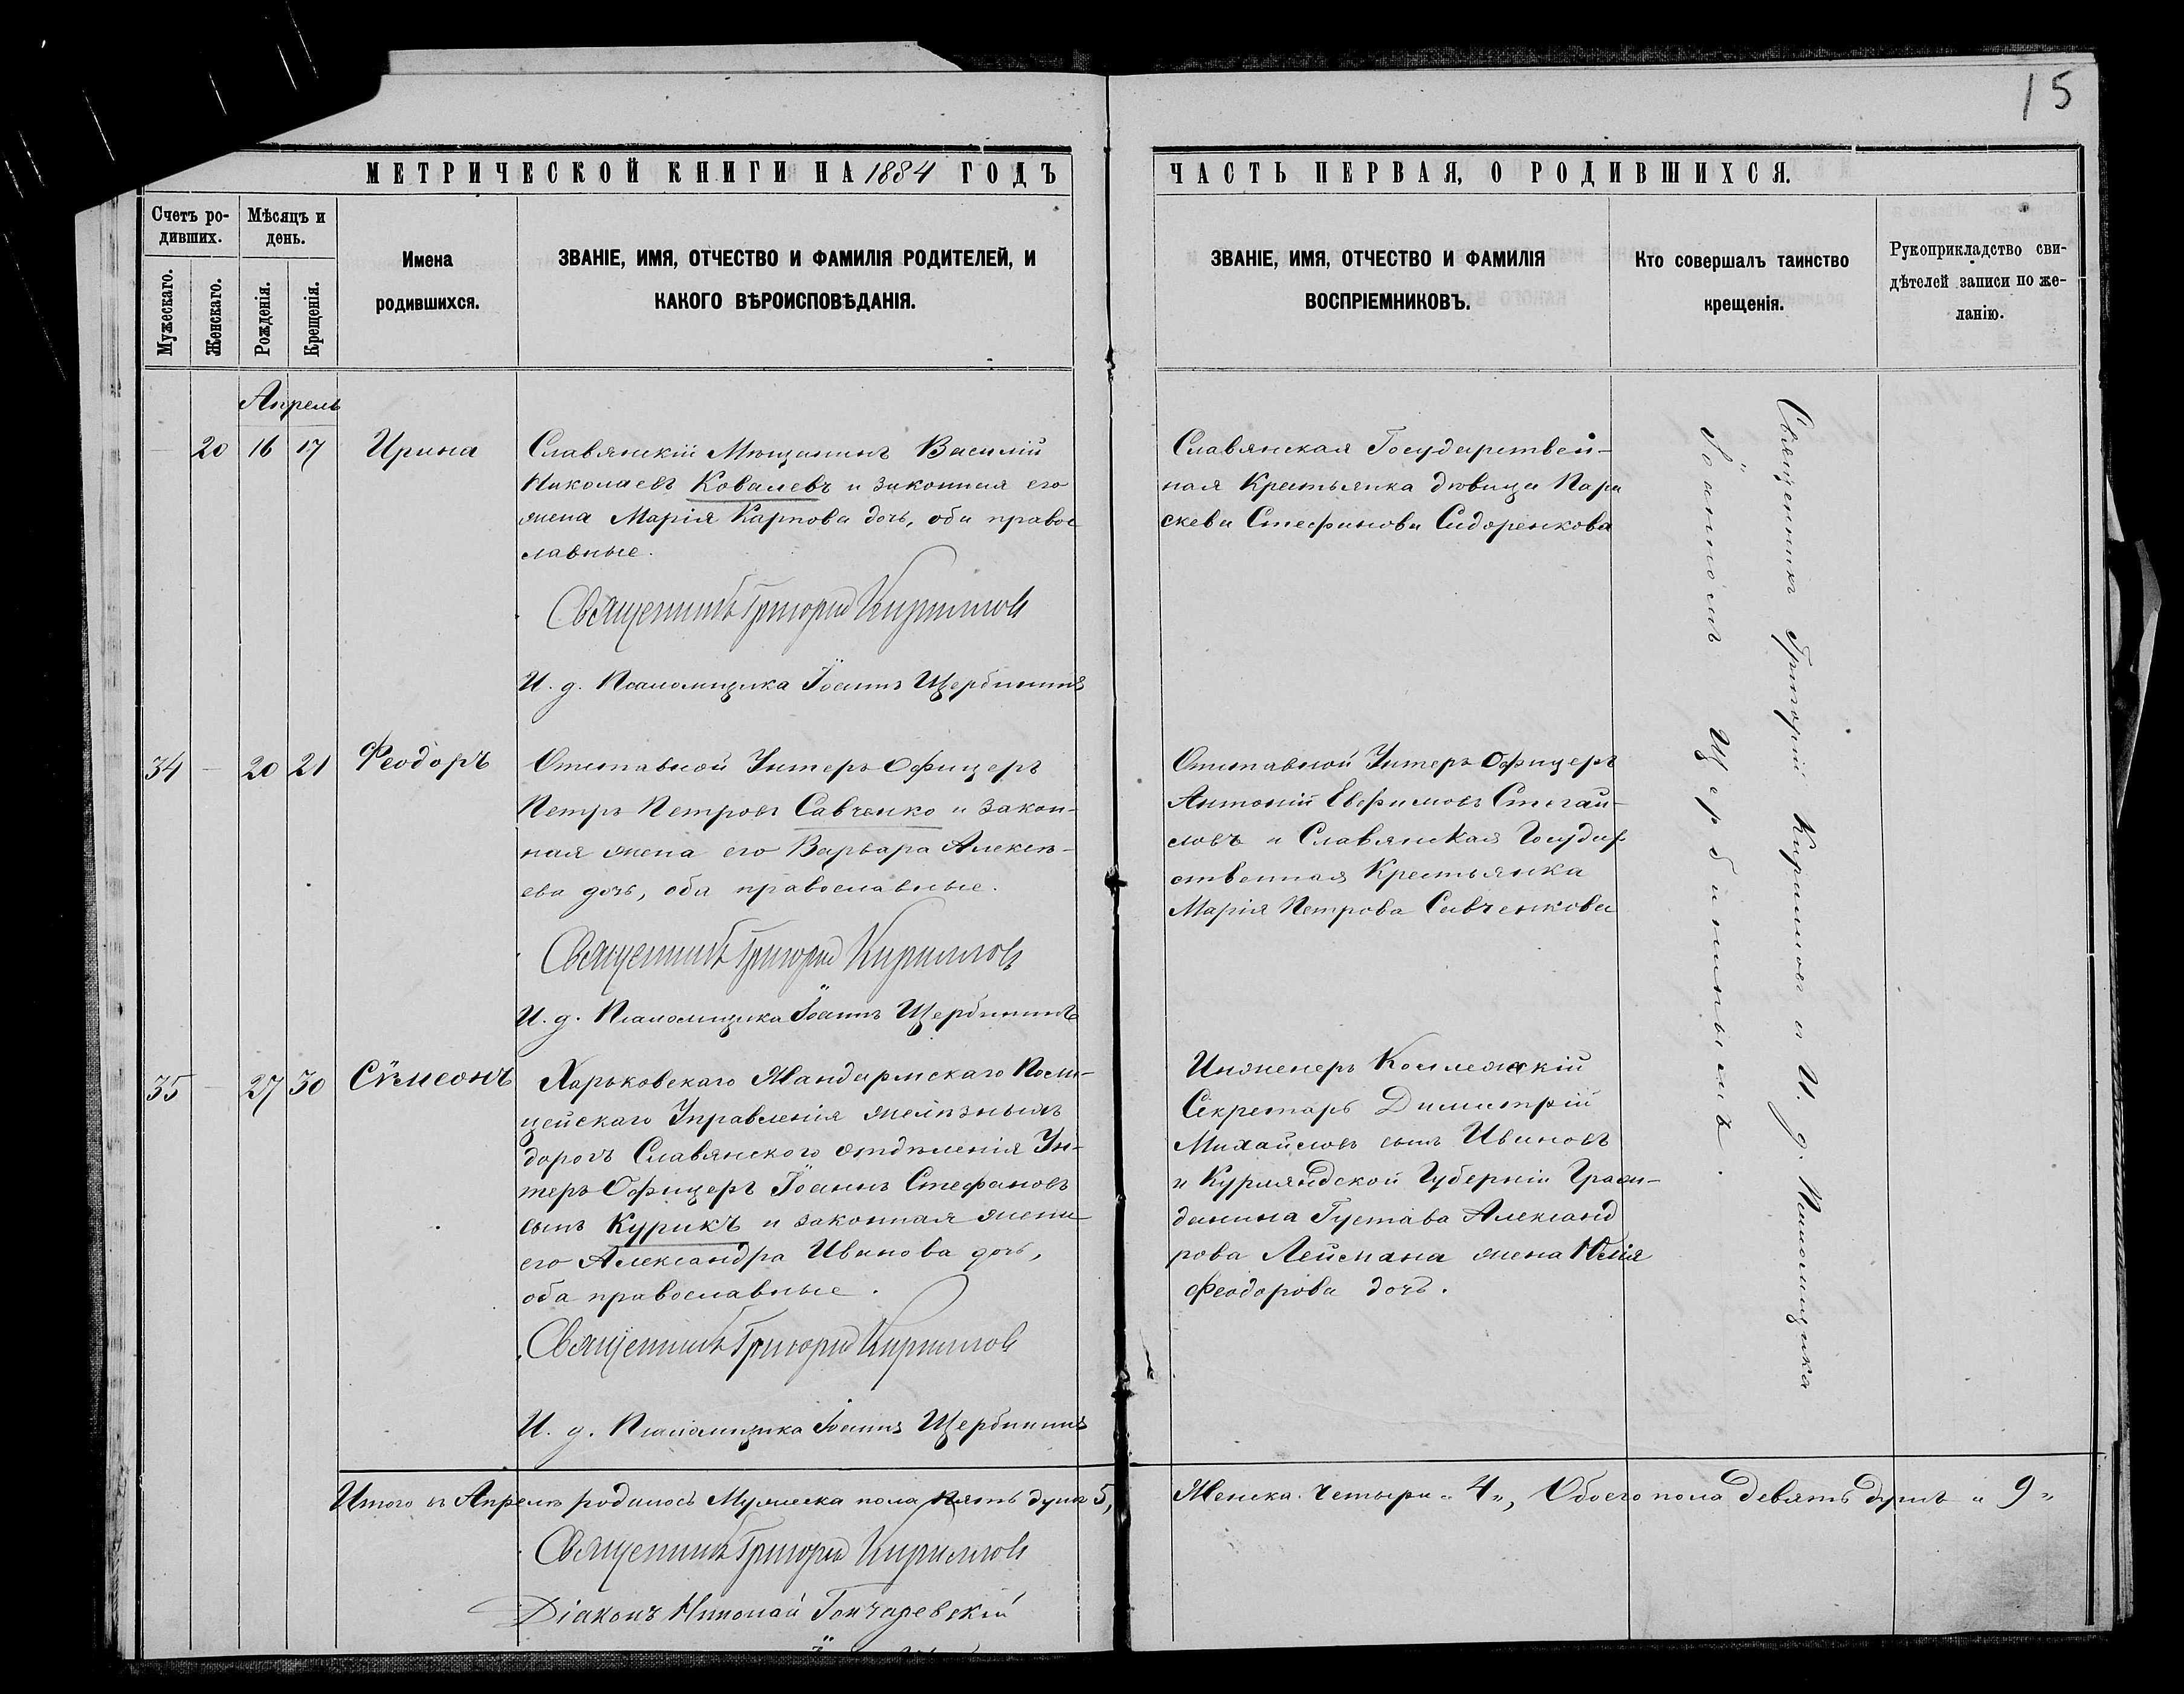 15
МЕТРИЧЕСКОЙ КНИГИ НА 1884 ГОДЪ
Счетъ ро-
дившихъ.
Мужескаго.
Женскаго.
Мѣсяцъ и
день.
Рожденія.
Крещенія.
Имена
родившихся.
ЗВАНІЕ, ИМЯ, ОТЧЕСТВО И ФАМИЛІЯ РОДИТЕЛЕЙ, И
КАКОГО ВѢРОИСПОВѢДАНІЯ.
Апрель
20 16 17 Ирина
Славянскій Мѣщанинъ Василій
Николаевъ Ковалевъ и законная его
жена Марія Карпова дочь, оба правос
лавные.
Священникъ Григорій Кирилловъ
И. д. Псаломщика Іоаннъ Щербининъ
34 — 20 21 Феодоръ
Отставной Унтеръ Офицеръ
Петръ Петровъ Савченко и закон-
ная жена его Варвара Алексѣ-
ева дочь, оба православные.
Священникъ Григорій Кирилловъ
И. д. Псаломщика Іоаннъ Щербининъ
35 — 27 30 Сѵмеонъ
Харьковскаго Жандармскаго Поли-
цейскаго Управленія желѣзныхъ
дорогъ Славянского отдѣленія Ун-
теръ Офицеръ Іоаннъ Стефановъ
сынъ Курикъ и законная жена
его Александра Иванова дочь,
оба православные.
Священникъ Григорій Кирилловъ
И. д. Псаломщика Іоаннъ Щербининъ
Итого въ Апрелѣ родилось Мужеска пола пять душъ 5,
Священникъ Григорій Кирилловъ
Діаконъ Николай Гончаревскій
ЧАСТЬ ПЕРВАЯ, О РОДИВШИХСЯ.
ЗВАНІЕ, ИМЯ, ОТЧЕСТВО И ФАМИЛІЯ
ВОСПРІЕМНИКОВЪ.
Кто совершалъ таинство
крещенія.
Рукоприкладство сви-
дѣтелей записи по же-
ланію.
Славянская Государствен-
ная Крестьянка дѣвица Пара
скева Стефанова Сидоренкова
Отставной Унтеръ Офицеръ
Антоній Евфимовъ
и Славянская Государ
ственная Крестьянка
Марія Петрова Савченкова
Инженеръ Коллежскій
Секретарь Димитрій
Михайловъ сынъ Ивановъ
и Курляндской Губерніи Граж-
данина Густава Александ
рова Лейсмана жена Юлія
Феодорова дочь.
Священникъ Григорій Кирилловъ и И. д. Псаломщика
Іоанномъ Щербининымъ.
Женска четыре „ 4 „, Обоего пола девять душъ „ 9 „